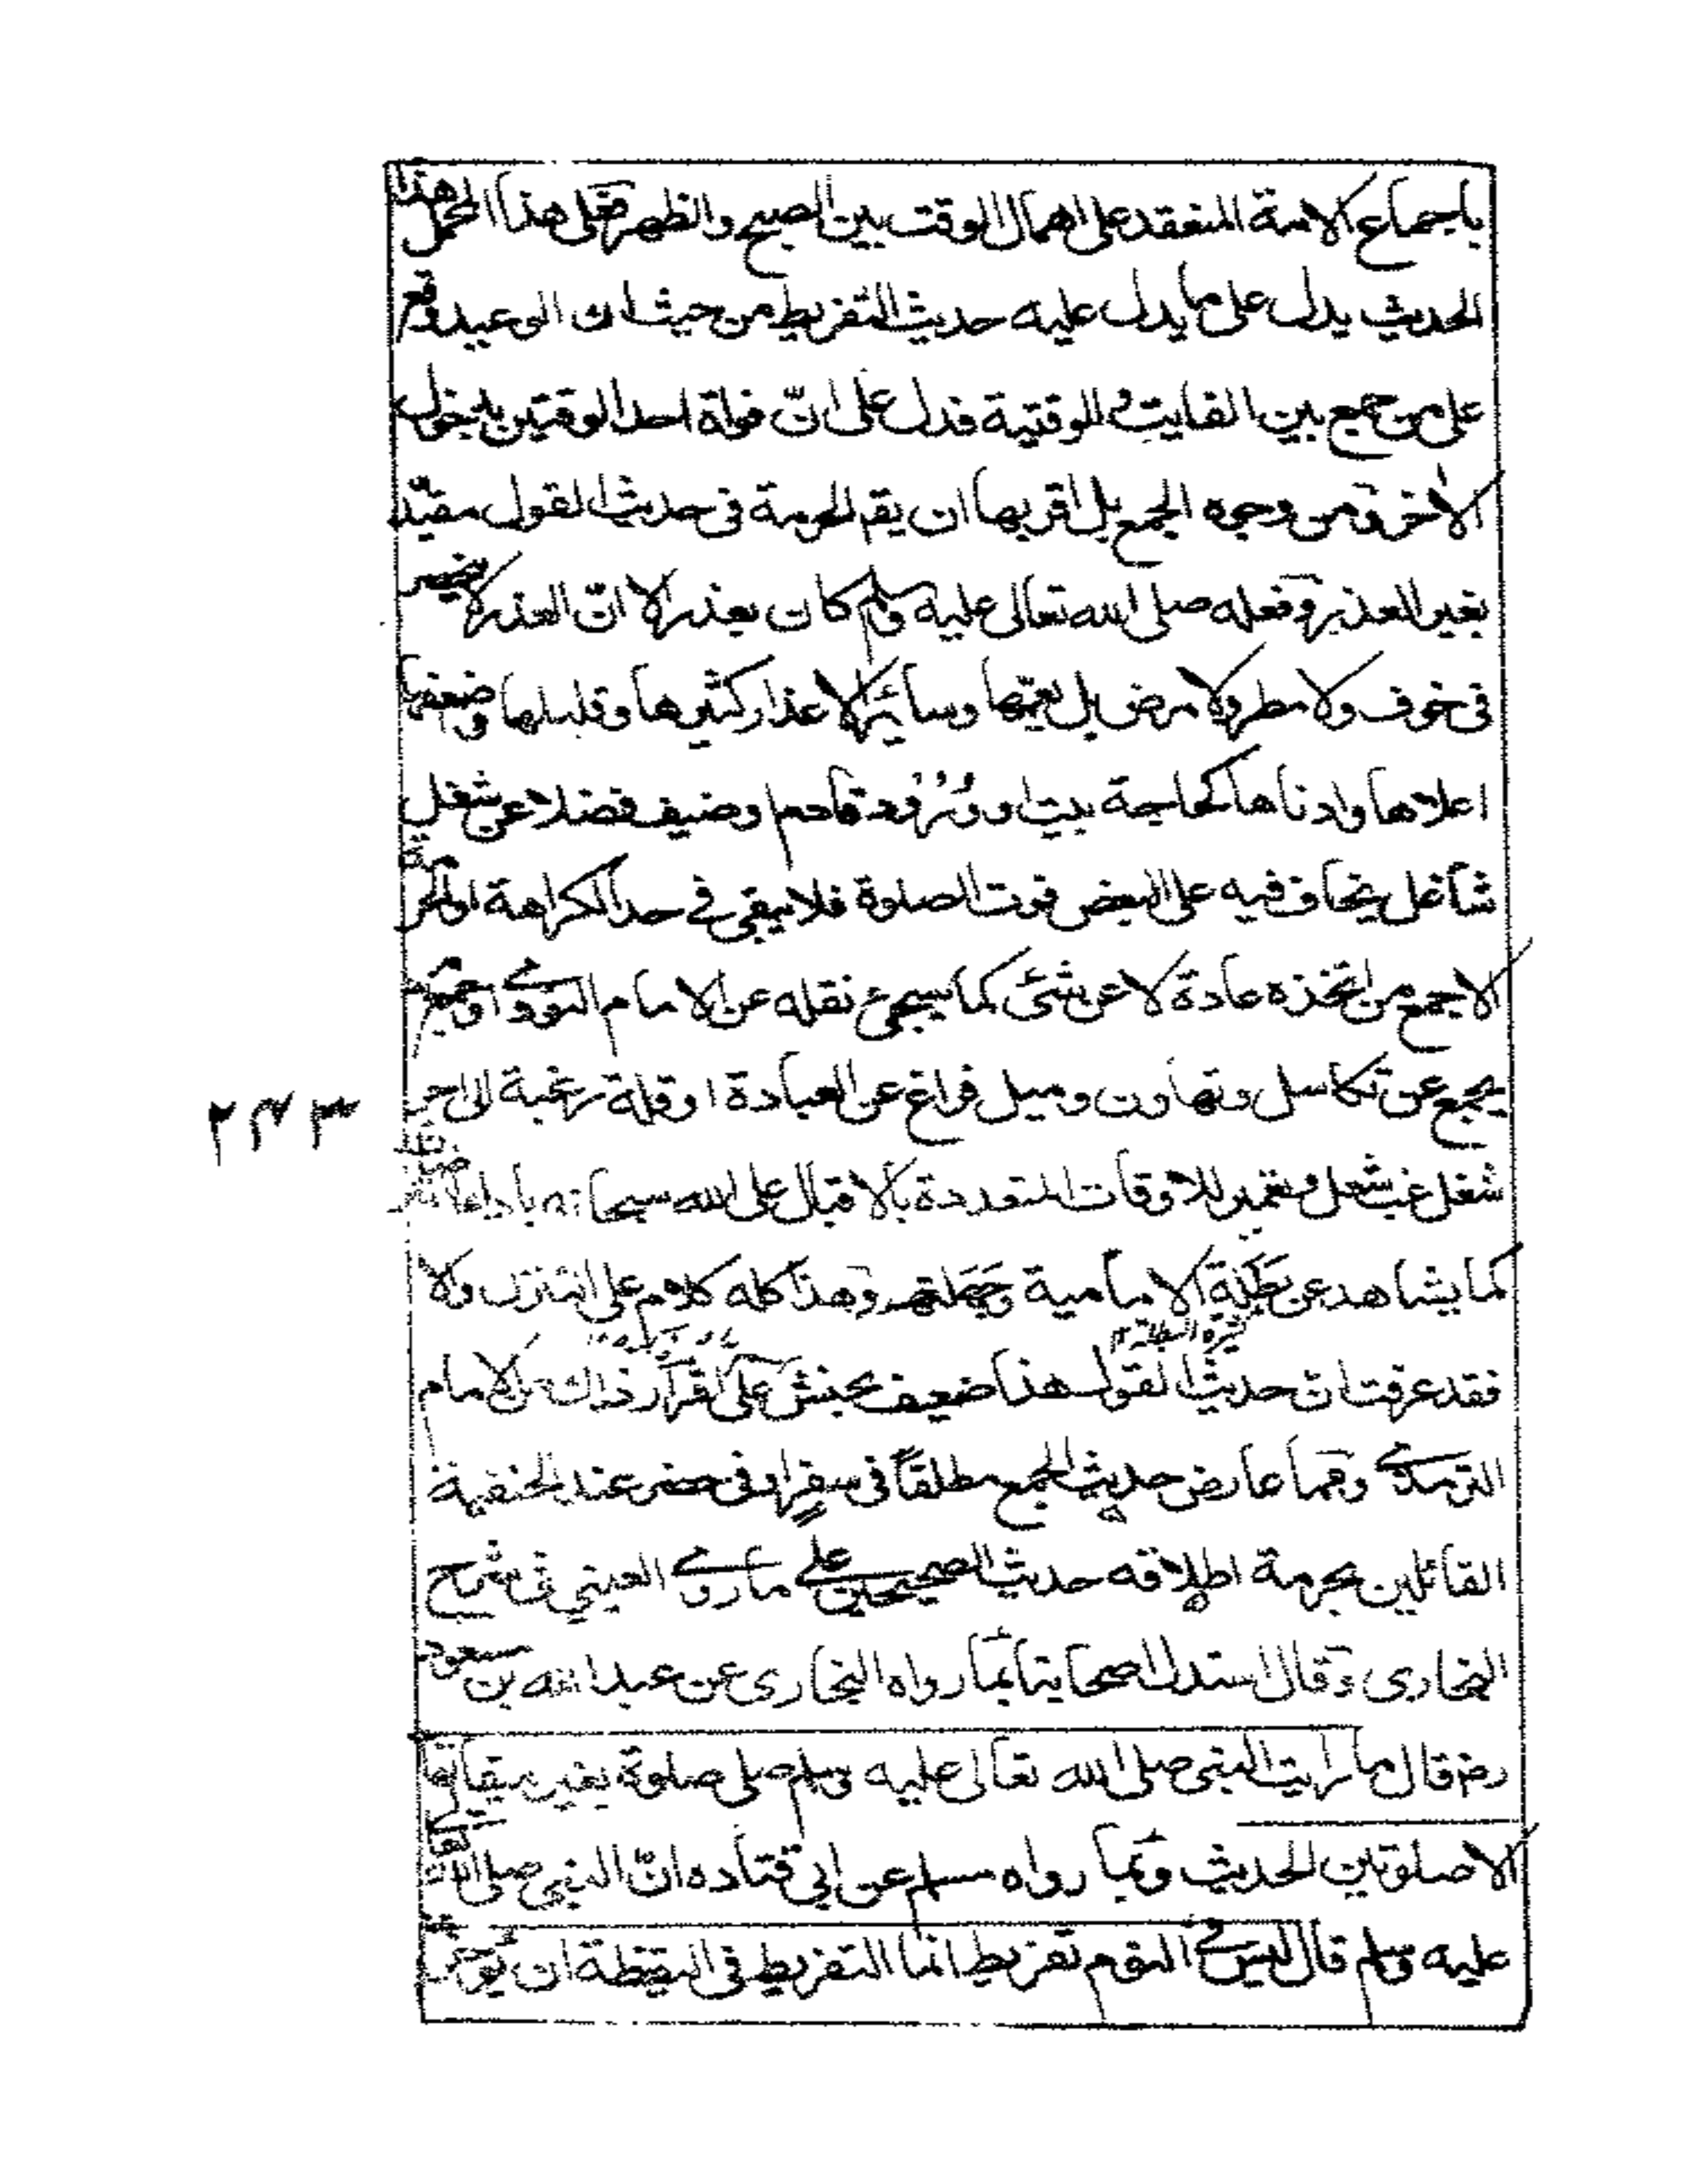 باجماع الامة المنعقد على اهمال الوقت بين الصبح والظهر فعلى هذا المحمل هذا
الحديث يدل على ما يدل عليه حديث التفريط من حيث ان الوعيد وقع
على من جمع بين الفايت والوقتية فدل على انّ فواة احد الوقتين بدخول
الاخر ومن وجوه الجمع بل اقربها ان يقم الحرمة فى حديث القول مقيّد
بغير العذر وفعله صلى الله تعالى عليه وسلم كان بعذر الا انّ العذر لا ينحصر
فى خوف ولا مطر ولا مرض بل يعمّها وسائر الاعذار كثيرها وقليلها وضعفها
اعلاها وادناها كحاجة بيت او ورود قادم او ضيف فضلا عن شغل
شاغل يخاف فيه على البعض فوت الصلوة فلا يبقى في حد الكراهة او
الاجمع من اتخذه عادة لا عن شئ كما سيجئ نقله عن الامام النووي او جمع
يجمع عن تكاسل وتهاون وميل فراغ عن العبادة او قلة رغبة الى
شغل غب شغل وتعمير للاوقات المتعددة بالاقبال على الله سبحانه
كما يشاهد عن بطلة الامامية وجهلتهم وهذا كله كلام على التنزل والا
فقد عرفت ان حديث القول هذا ضعيف بحنش على اقرار ذاك من الامام
الترمذي ومما عارض حديث الجمع مطلقاً فى سفر او فى حضر عند الحنفية
القائلين بحرمة اطلاقه حديث الصحيحين على ما روى العيني فى شرح
البخارى وقال استدل اصحابنا بما رواه البخارى عن عبد الله بن مسعود
رضـ قال ما رايت النبى صلى الله تعالى عليه وسلم صلى صلوة بغير ميقاتها
الا صلوتين الحديث وبما رواه مسلم عن ابي قتاده انّ النبى صلى الله تعالى
عليه وسلم قال ليس في النوم تفريط انما التفريط فى اليقظة ان يؤخر
٢٤٣